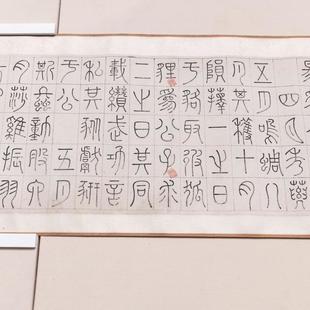 四月秀葽
五月鳴蜩八
月其穫十月
隕蘀一之日
于貉取彼狐
狸為公子裘
二之日其同
載纘武功言
私其豵獻豜
于公五月
斯螽動股六
月莎雞振羽